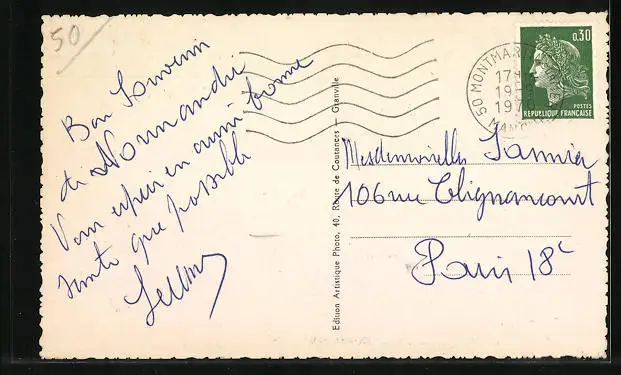 50
Bon Souvenir
de Normandie
Vous espère en aussi bonne
santé que possible
Edition Artistique Photo, 40, Route de Coutances — Granville
50 MONTMAR
17H
19-9
1970
MANCHE
0,30
POSTES
REPUBLIQUE FRANÇAISE
Mesdemoiselles Lannier
106 rue Clignancourt
Paris 18e